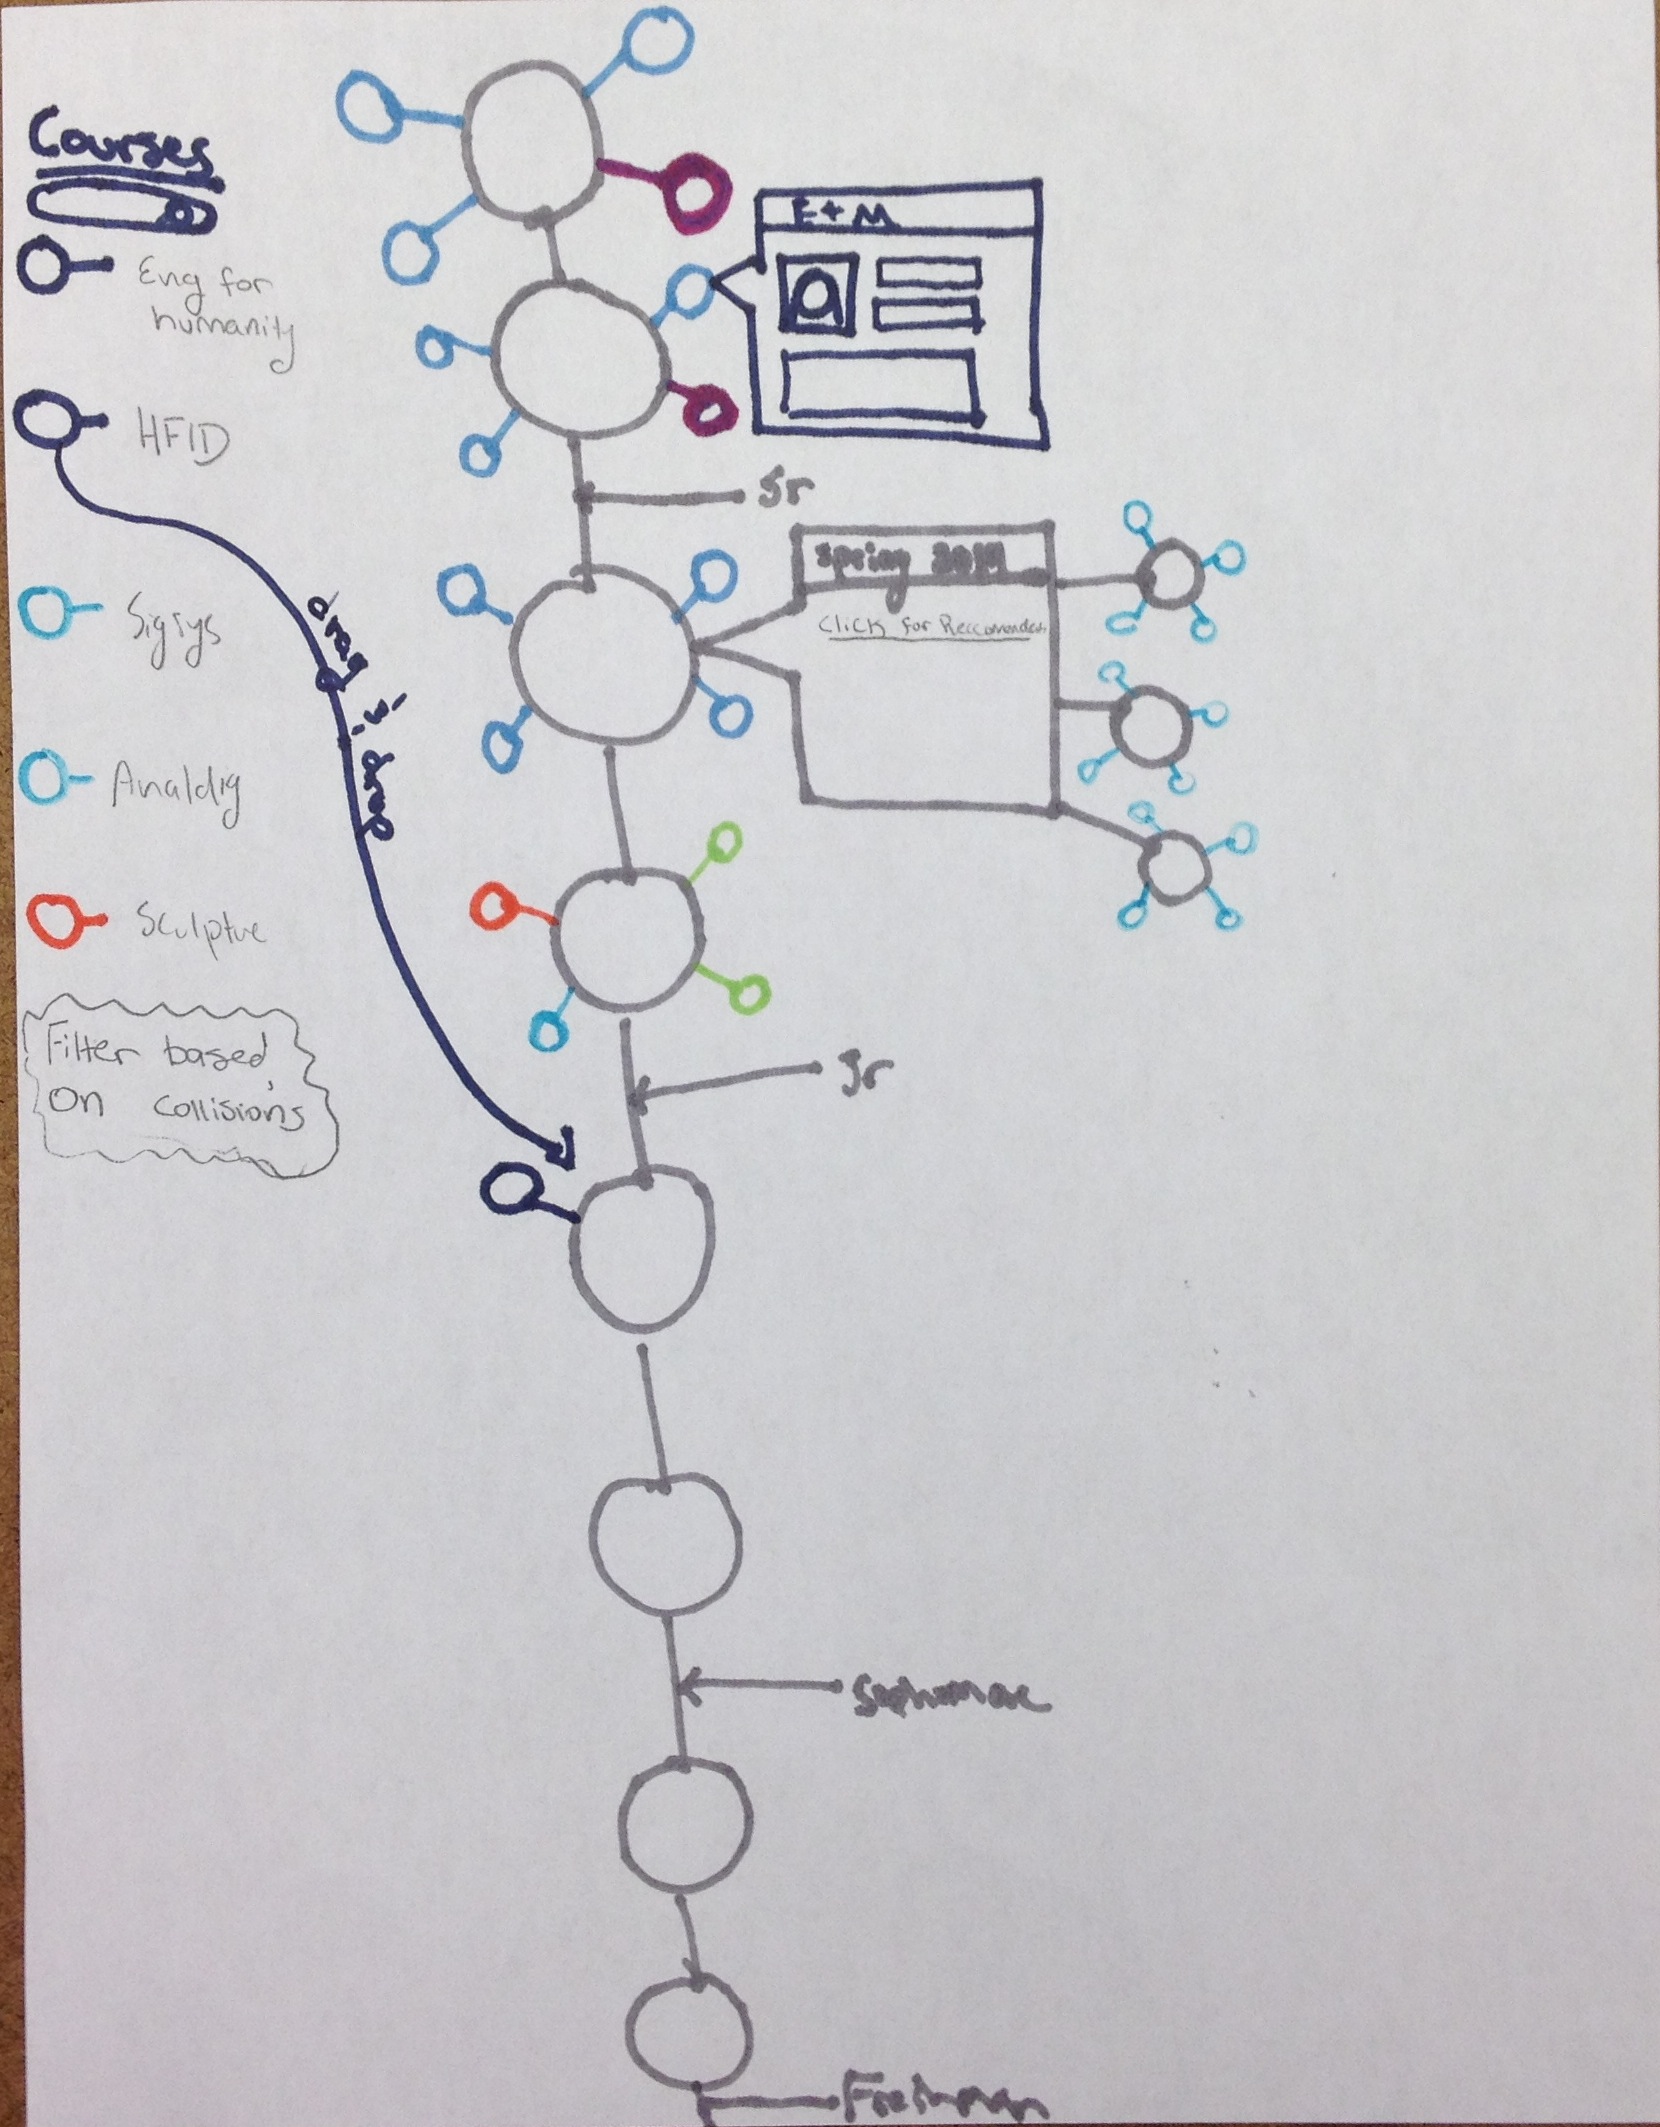 Courses
Eng for
humanity
HFID
Sigsys
Analdig
Sculptue
Filter based
on collisions
drag & drop
E+M
Sr
Spring 2014
Click for Reccomended
Jr
Sophomore
Freshman